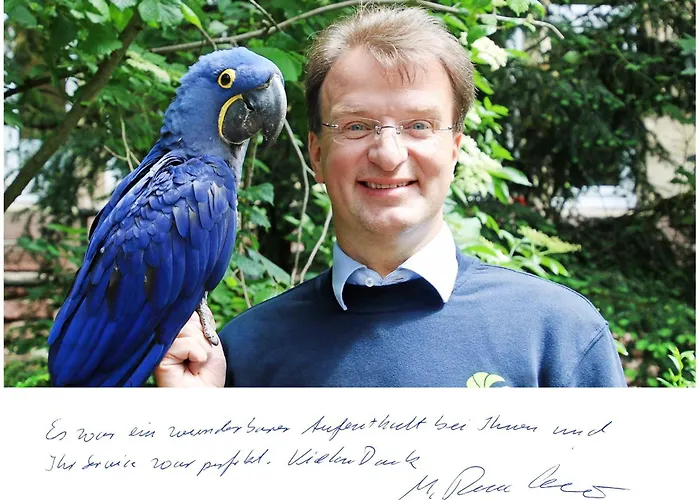 Es war ein wunderbarer Aufenthalt bei Ihnen und
Ihr Service war perfekt. Vielen Dank
M.